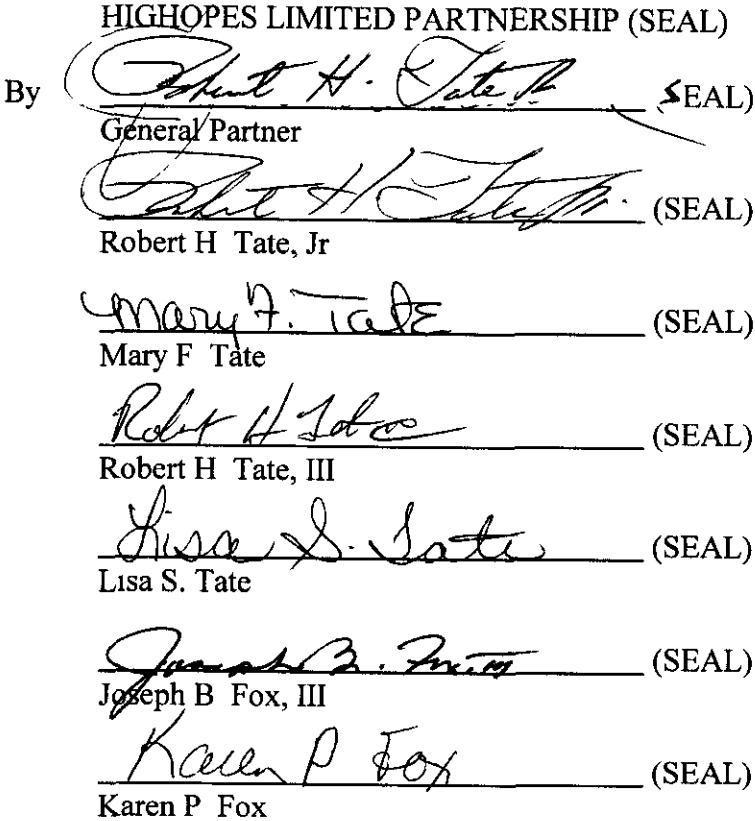 HIGHHOPES LIMITED PARTNERSHIP (SEAL)
By Robert H. Tate Jr. SEAL)
General Partner
Robert H Tate, Jr. (SEAL)
Robert H Tate, Jr
Mary F. Tate (SEAL)
Mary F Tate
Robert H Tate (SEAL)
Robert H Tate, III
Lisa S. Tate (SEAL)
Lisa S. Tate
Joseph B. Fox, III (SEAL)
Joseph B Fox, III
Karen P Fox (SEAL)
Karen P Fox